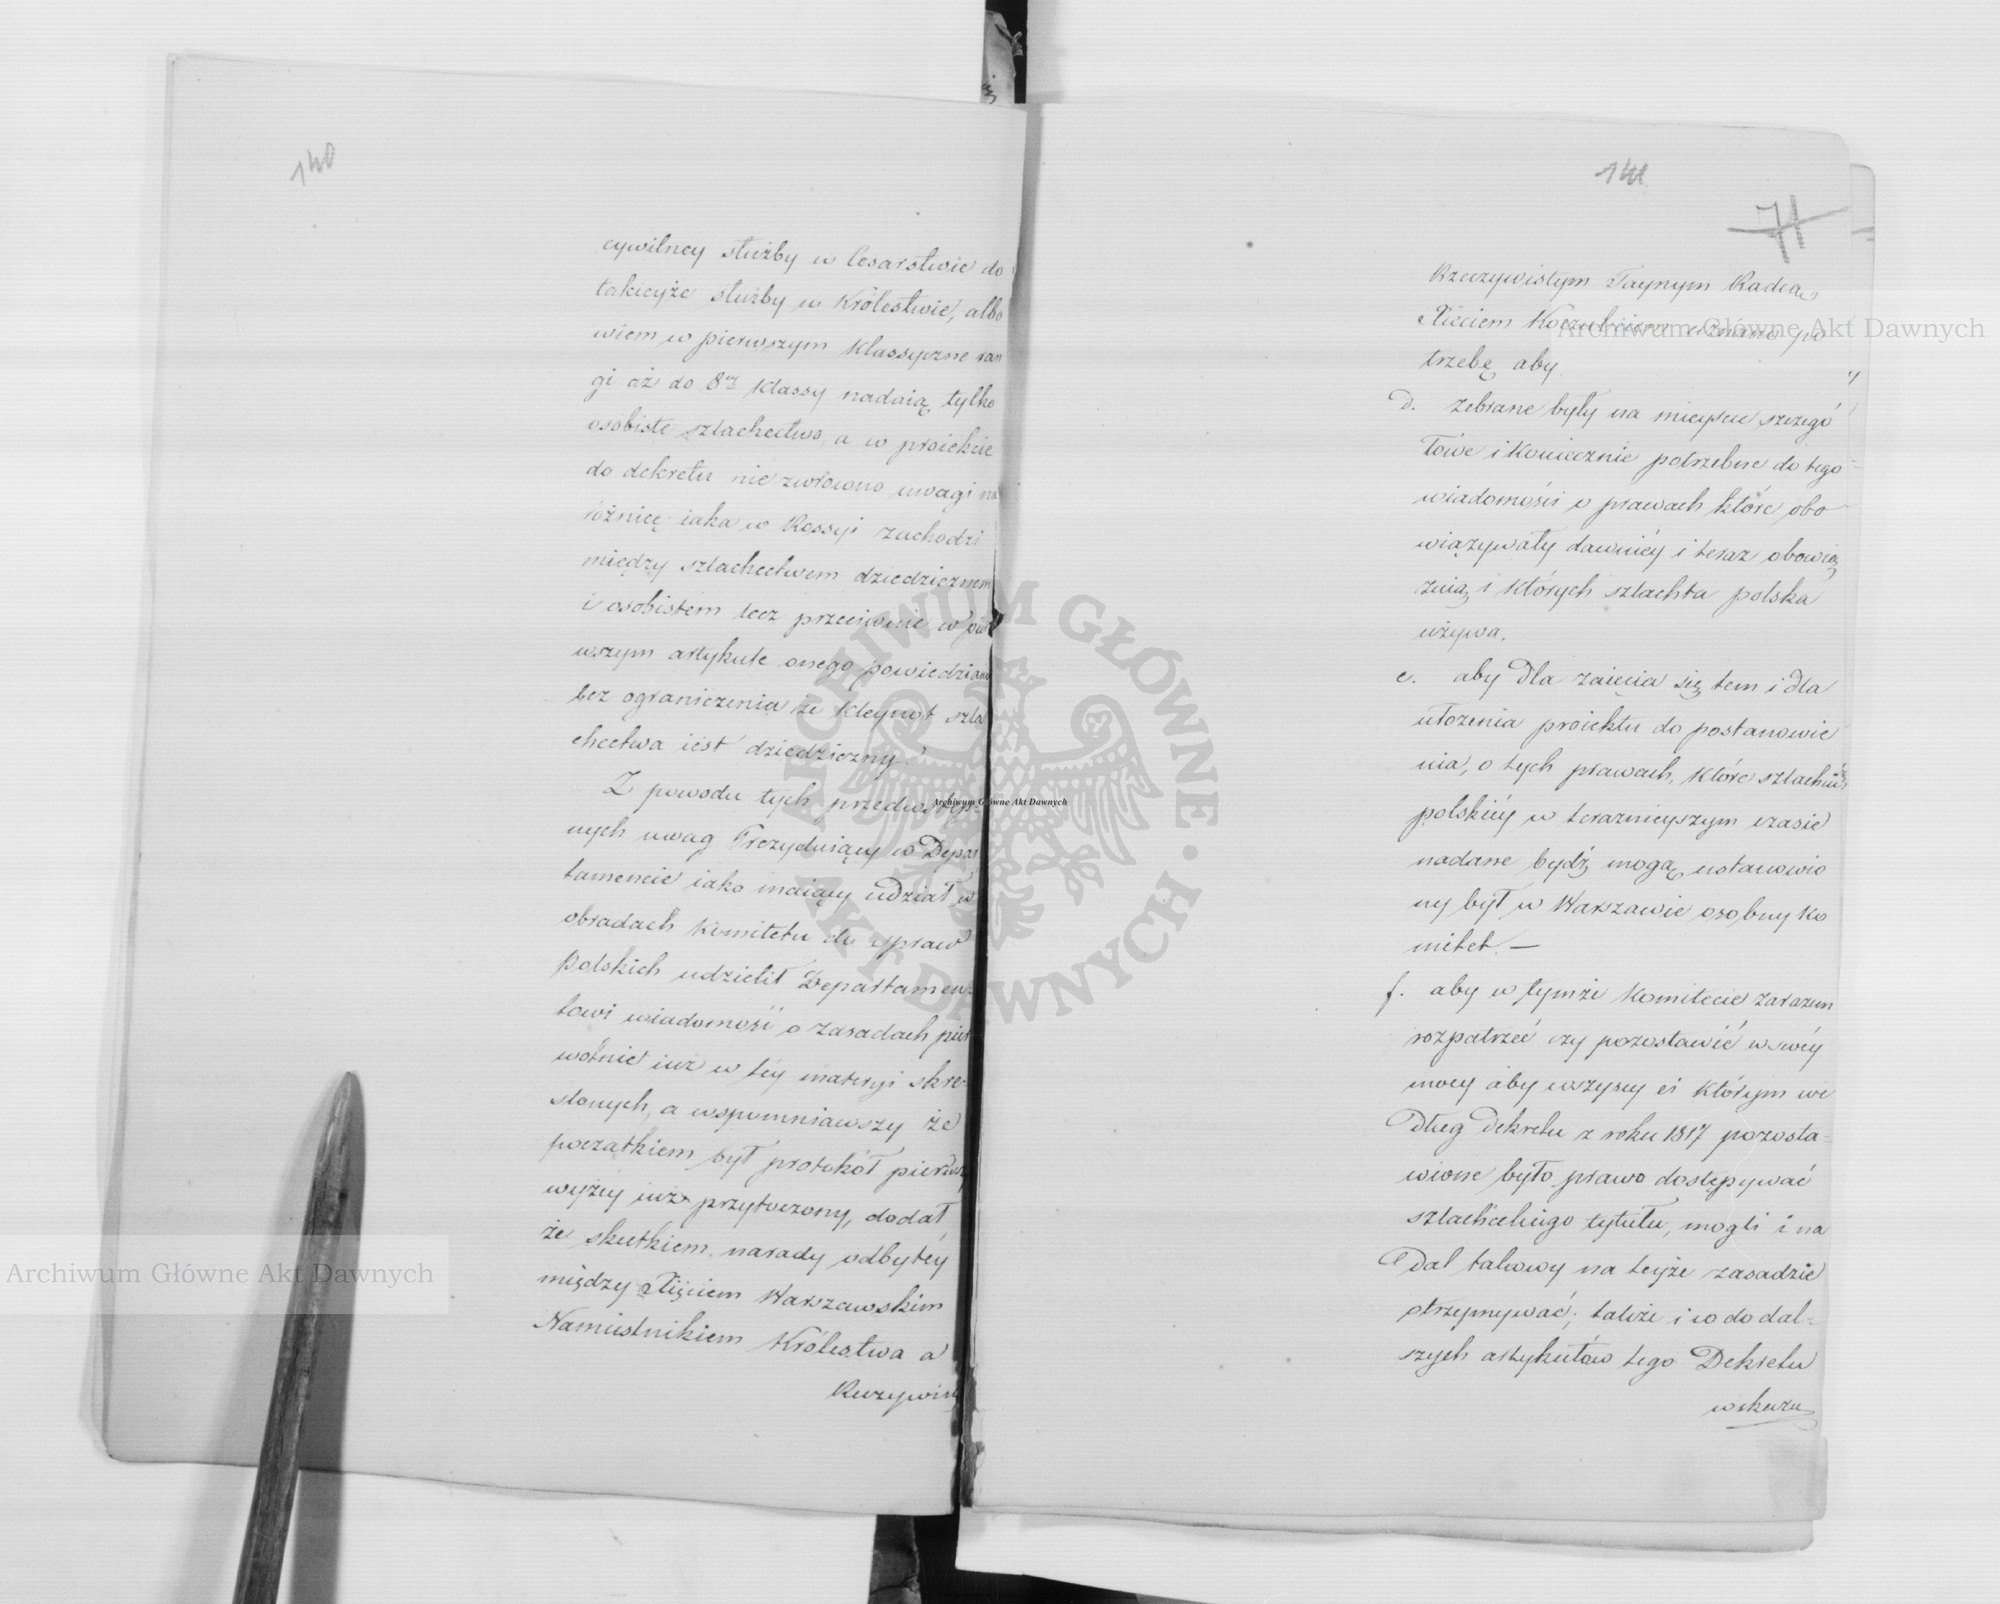 140
cywilney służby w Cesarstwie do
takieyże służby w Królestwie, albo
wiem w pierwszym klassyczne ran
gi aż do 8ey klassy nadaią tylko
osobiste szlachectwo, a w proiekcie
do dekretu nie zwrócono uwagi na
różnicę iaka w Rossyi zachodzi
między szlachectwem dziedzicznem
i osobistem lecz przeciwnie w pier
wszym artykule onego powiedziano
bez ograniczenia że kleynot szla
chectwa iest dziedziczny.
Z powodu tych przedwstęp=
nych uwag Prezyduiący w Depar
tamencie iako maiący udział w
obradach Komitetu do spraw
Polskich udzielił Departamen=
towi wiadomość o zasadach pier
wotnie iuż w téy materyi skre=
slonych, a wspomniawszy że
początkiem był protokół pierwszy
wyżey iuż przytoczony, dodał
że skutkiem narady odbytéy
między Xięciem Warszawskim
Namiestnikiem Królestwa a
Rzeczywis
141
71
Rzeczywistym Taynym Radcą
Xięciem Koczubeiem uznano po
trzebę aby
d. zebrane były na mieyscu szczegó
łowe i koniecznie potrzebne do tego
wiadomości o prawach które obo
wiązywały dawniéy i teraz obowią
zuią i których szlachta polska
używa.
e. aby dla zaięcia się tem i dla
ułożenia proiektu do postanowie
nia, o tych prawach, które szlachcie
polskiéy w teraznieyszym czasie
nadane bydź mogą ustanowio
ny był w Warszawie osobny Ko
mitet. —
f. aby w tymże Komitecie zarazem
rozpatrzeć czy pozostawić w swéy
mocy aby wszyscy ci którym we
dług dekretu z roku 1817 pozosta=
wione było prawo dostępywać
szlacheckiego tytułu, mogli i na
dal takowy na teyże zasadzie
otrzymywać; także i co do dal=
szych artykułów tego Dekretu
w skutku
Archiwum Główne Akt Dawnych
Archiwum Główne Akt Dawnych
Archiwum Główne Akt Dawnych
ARCHIWUM GŁÓWNE · AKT DAWNYCH ·